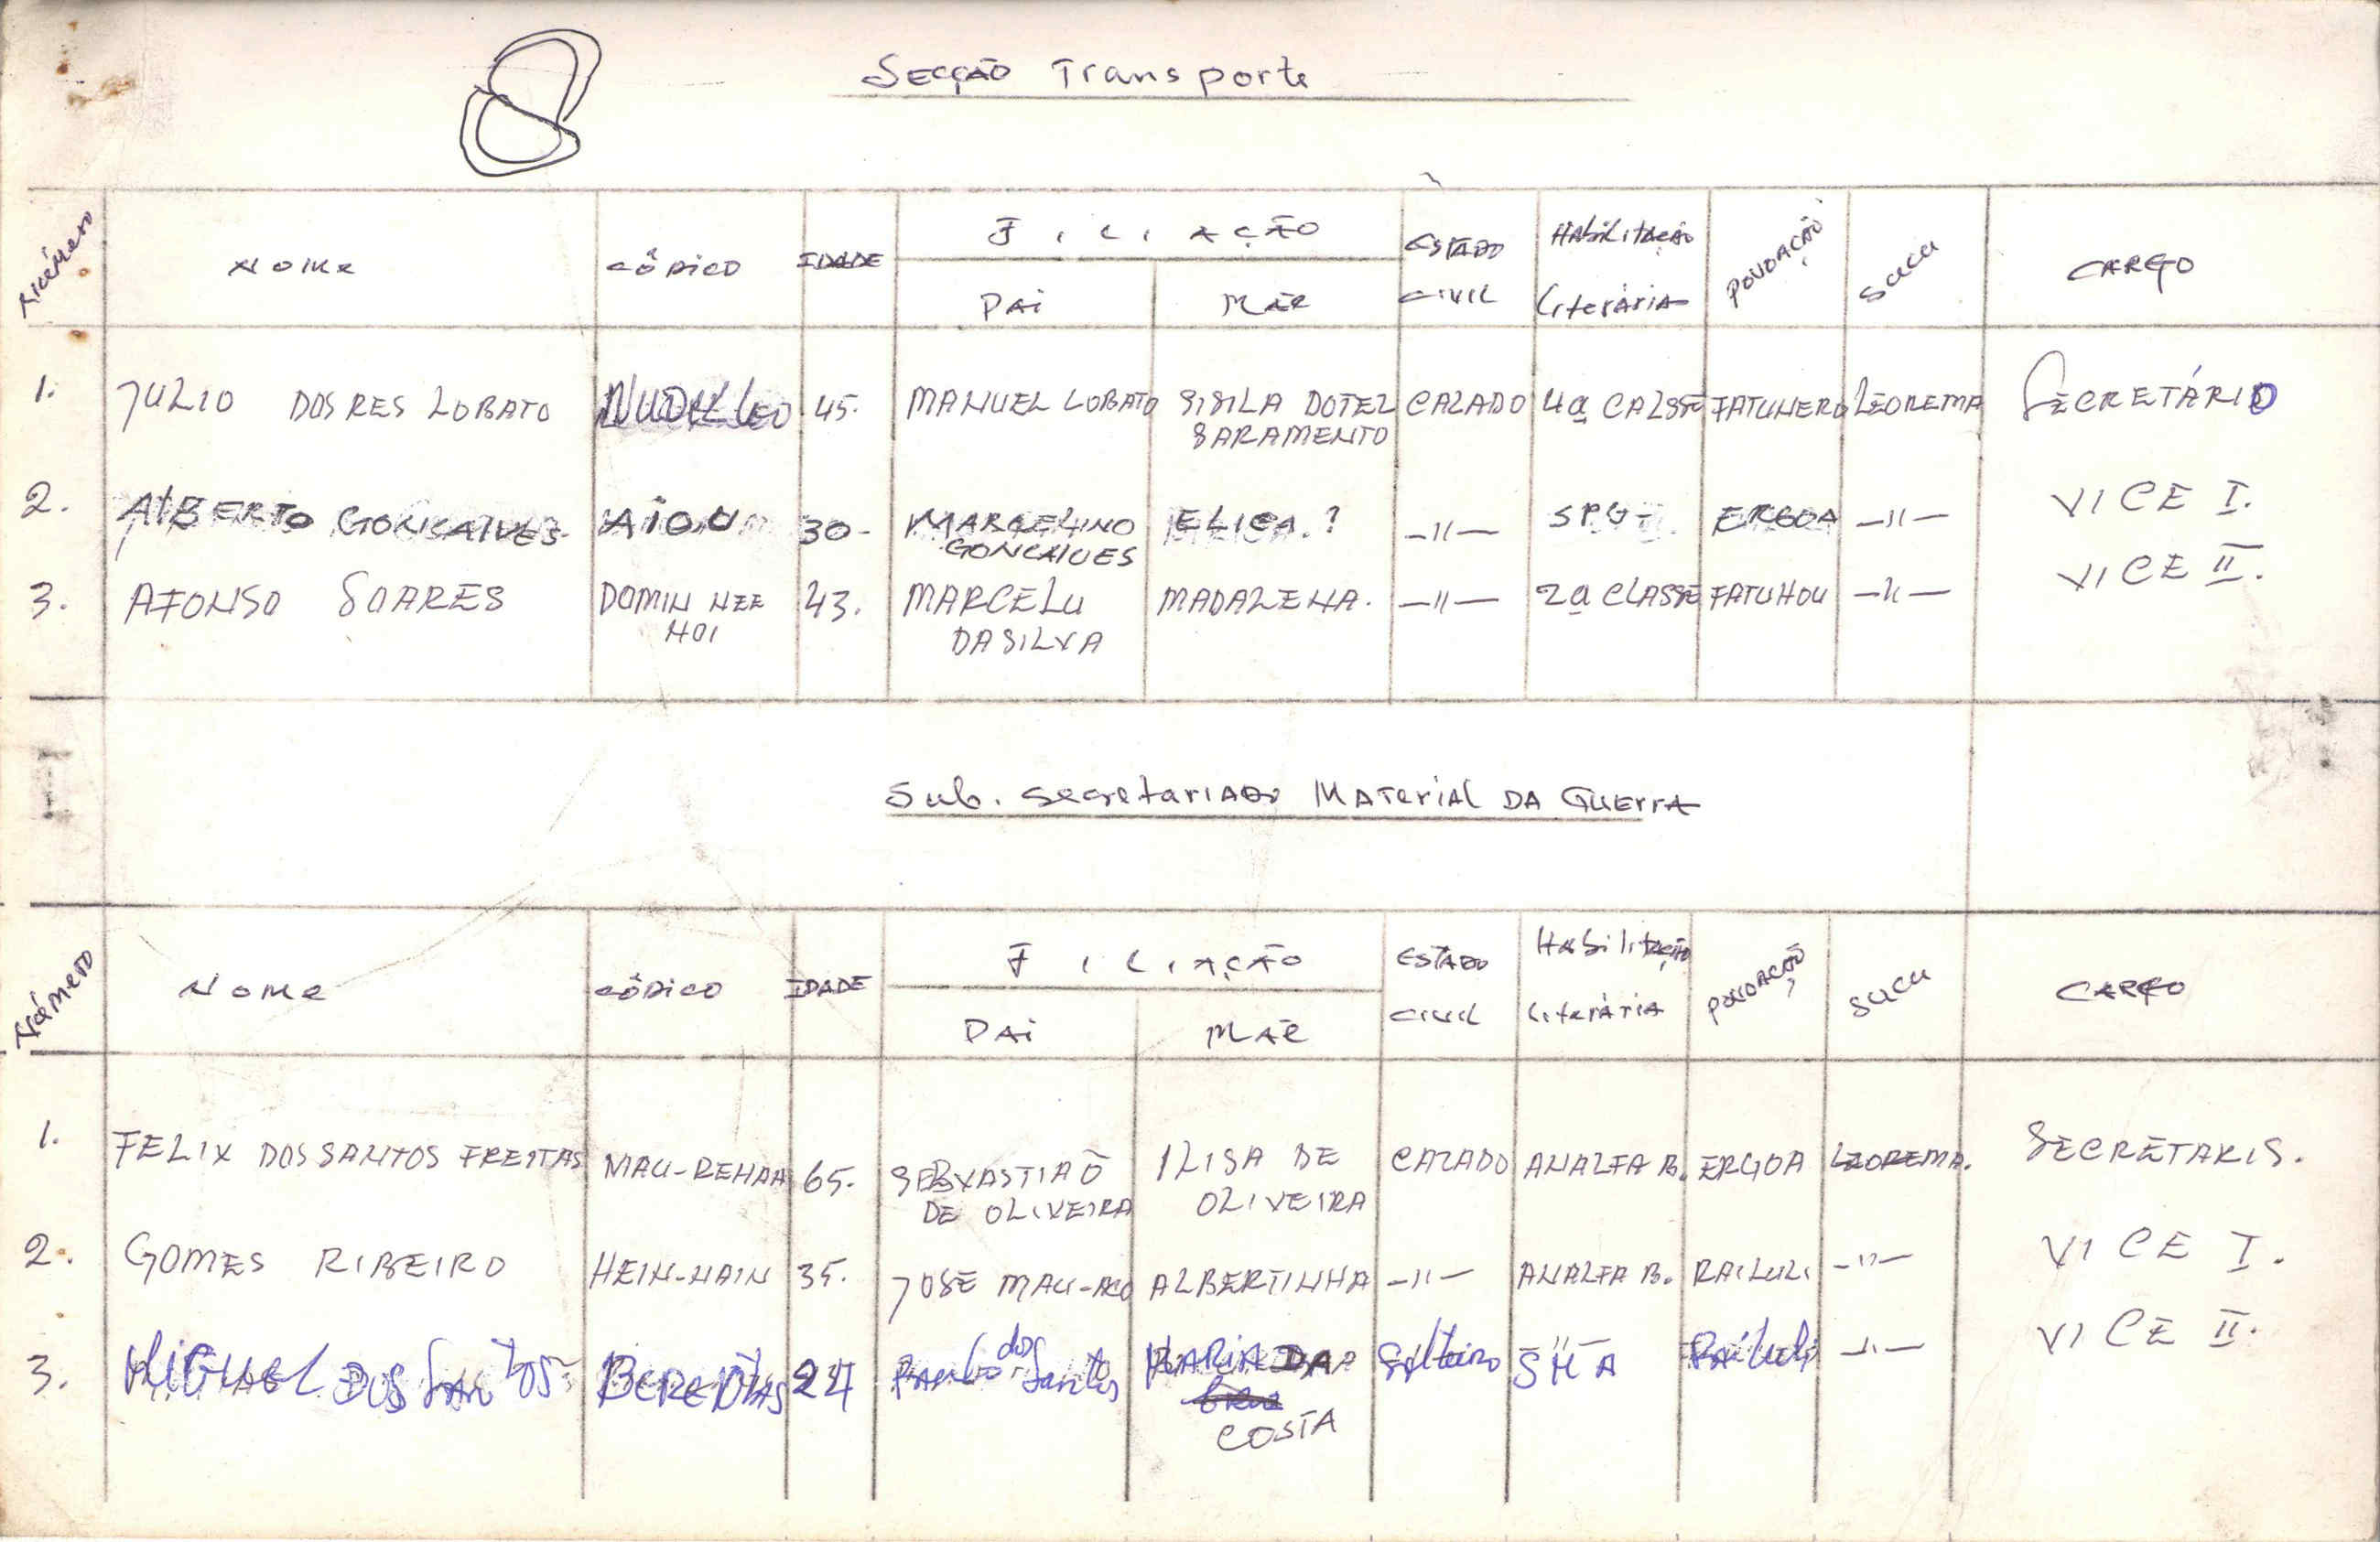 8
Secção Transporte
Número Nome Códico IDADE Filiação ESTADO CIVIL Habilitação Literária POVOAÇÃO Sucu CARGO
PAI MÃE
1. JULIO DOS RES LOBATO 45. MANUEL LOBATO SISILA DOTEL SARAMENTO CAZADO 4ª CALSSE FATUNERO LEOREMA SECRETÁRIO
2. ALBERTO GONCALVES AIOU 30- MARCELINO GONCALVES ELICA.? —"— SPG- ERGOA —"— VICE I.
3. AFONSO SOARES DOMIN NEE NOI 43. MARCELU DASILVA MADALENA. —"— 2ª CLASSE FATUHOU —"— VICE II.
Sub. Secretariado Material DA Guerra
Número Nome Códico IDADE Filiação ESTADO CIVIL Habilitação Literária POVOAÇÃO Sucu CARGO
PAI MÃE
1. FELIX DOS SANTOS FREITAS MAU-REHAA 65. SEBVASTIAÕ DE OLIVEIRA ILISA DE OLIVEIRA CAZADO ANALFA B. ERGOA LEOREMA. SECRETARIS.
2. GOMES RIBEIRO HEIN-HAIN 35. JOSE ALBERTINHA —"— ANALFA B. RAILULI —"— VICE I.
3. MIGUEL DOS SANTOS 24 dos Santos MARIA DA COSTA Solteiro Railuli —"— VICE II.